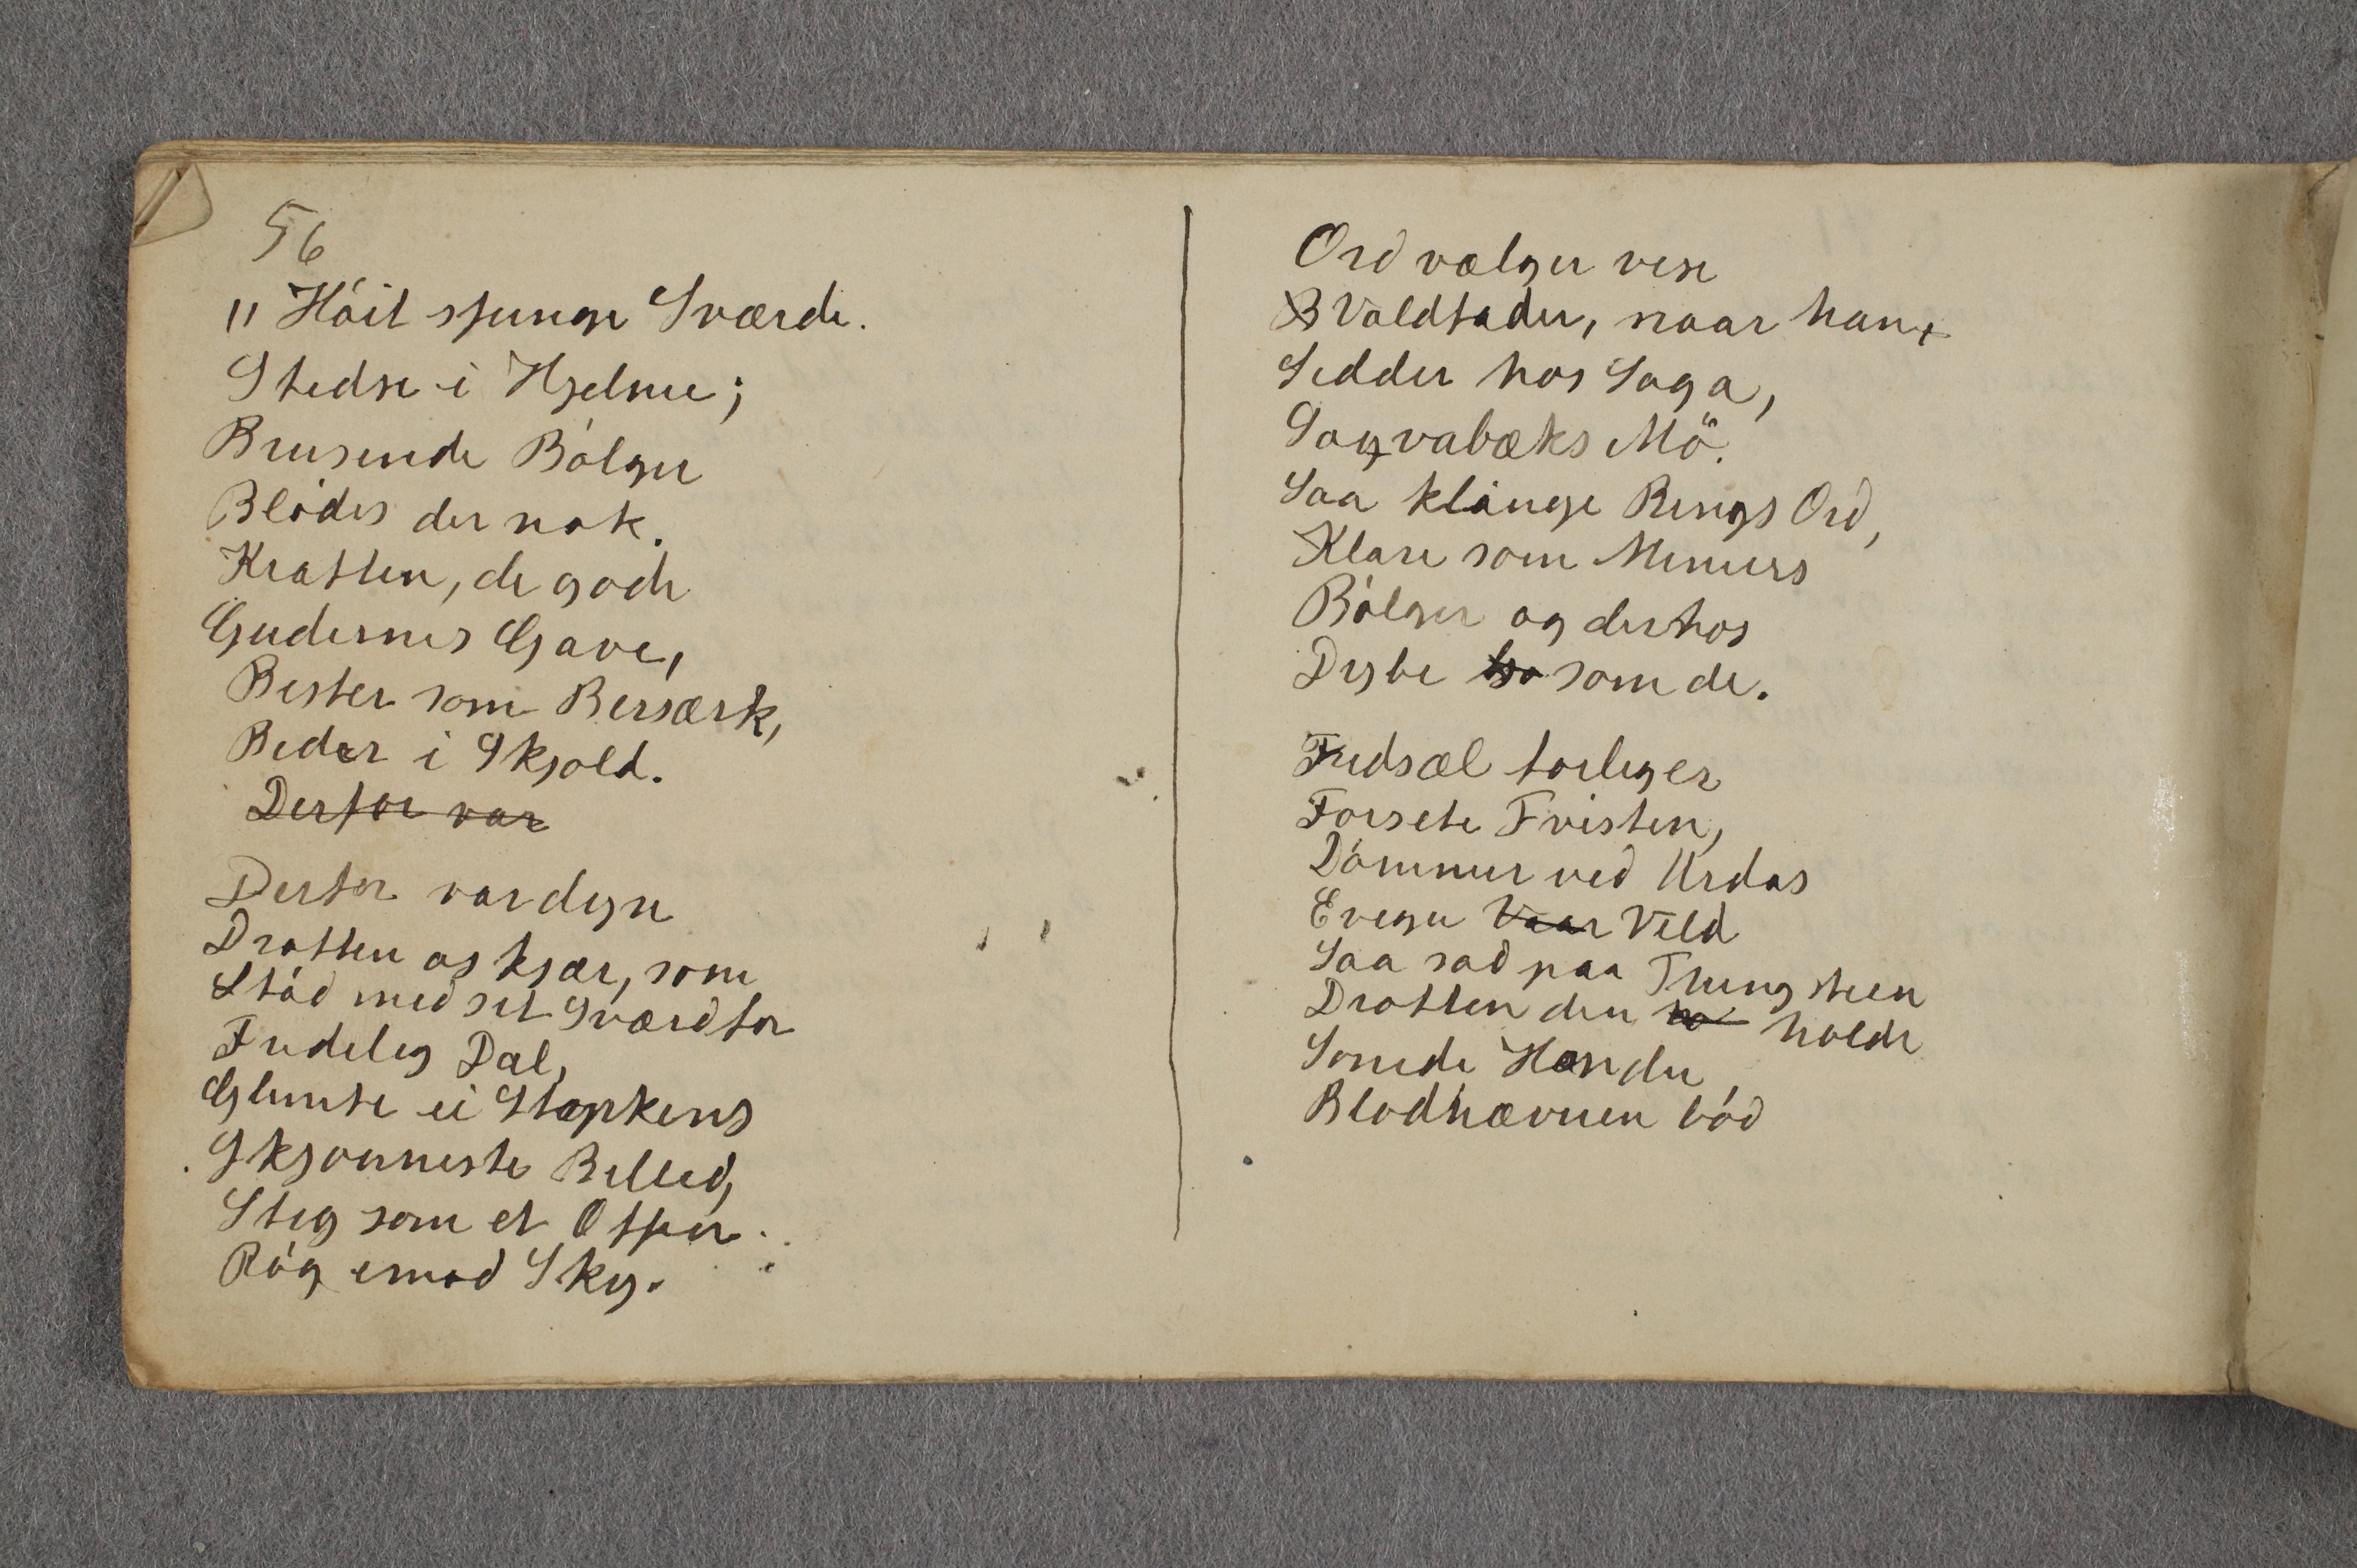 56
"Höit sjunge Sværde.
Stedse i Hjelme;
Brusende Bölger
Blödes der nok.
Kraften, de gode
Gudernes Gave,
Bister som Bersærk,
Bider i Skjold.
Derfor var
Derfor var dyre
Drotten os kjær, som
Stöd med sit Sværd for
Fredelig Dal,
Glimte ei Styrkens
Skjonneste Billed,
Steg som et Offer
Rög emod Sky.
Ord vælger vise
B Valdfader, naar han
Sidder hos Saga,
Soqvabæks Mö.
Saa klinge Rings Ord,
Klare som Mimers
Bölger og derhos
Dybe so som de.
Fredsæl forliger
Forsete Tvisten,
Dömmer ved Urdas
Eviger Vaar Veld
Saa sad paa Thingsteen
Drotten den ho holde
Sonede Hænder,
Blodhævnen böd